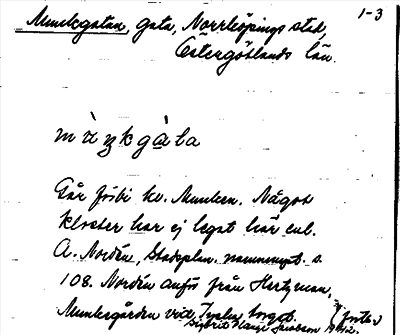 1-3
Munkgatan, gata, Norrköpings stad,
Östergötlands län.
Går förbi kv. Munken. Något
kloster har ej legat här enl.
A. Nordén, Stadsplan. namnenpt s.
108. Nordén anför från Hertzman,
Munkegården vid Tyska torget. (forts.)
Sigbrit Plange Jansson 1942.